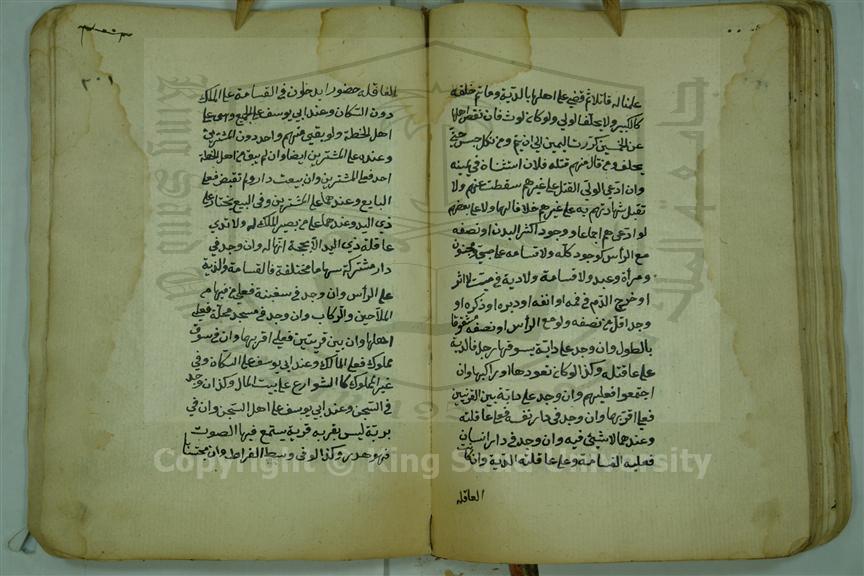 علمنا له قاتلا ثم قضي على اهلها بالدية وما تم خلفه
كالكبير ولا يحلف الولي ولو كان لوث فان نقص اهلها
عن الخمسين كررت اليمين الى ان يتم ومن نكل حبس حتى
يحلف ومن قال منهم قتله فلان استثناه في يمينه
وان ادعى الولي القتل على غيرهم سقطت عنهم ولا
تقبل شهادتهم به على غيرهم خلافا لهما ولا على بعضهم
لو ادعى هم اجماعا ووجود اكثر البدن او نصفه
مع الراس كوجود كله ولا قسامة على صبي ومجنون
ومرأة وعبد ولا قسامة ولا دية في ميت لا اثر
او خرج الدم في فمه او انفه او دبره او ذكره او
وجد اقل من نصفه ولو مع الراس او نصفه مشقوقا
بالطول وان وجد على دابة يسوقها رجل فالدية
على عاقلته وكذا لو كان يقودها او راكبها وان
اجتمعوا فعليهم وان وجد على دابة بين القريتين
فعلى اقربهما وان وجد في دار نفسه فعلى عاقلته
وعندهما لا شئ فيه وان وجد في دار انسان
فعليه القسامة وعلى عاقلته الدية وان كانت
العاقلة
العاقلة حضورا يدخلون في القسامة على الملاك
دون السكان وعند ابي يوسف على الجميع وهي على
اهل الخطة ولو بقي منهم واحد دون المشترين
وعنده على المشترين ايضا وان لم يبق من اهل الخطة
احد فعلى المشترين وان بيعت دار ولم تقبض فعلى
البايع وعندهما على المشتري وفي البيع بخيار على
ذي اليد وعندهما على من يصير الملك له ولا تدي
عاقلة ذي اليد الا بحجة انها له وان وجد في
دار مشتركة سهاما مختلفة فالقسامة والدية
على الرأس وان وجد في سفينة فعلى من فيها من
الملاحين والركاب وان وجد في مسجد محلة فعلى
اهلها وان بين قريتين فعلى اقربهما وان في سوق
مملوك فعلى المالك وعند ابي يوسف على السكان وفي
غير المملوك كالشوارع على بيت المال وكذا ان وجد
في السجن وعند ابي يوسف على اهل السجن وان في
برية ليس بقربه قرية يستمع فيها الصوت
فهو هدر وكذا لو في وسط الفرات وان محتبسا
Copyright © King Saud University